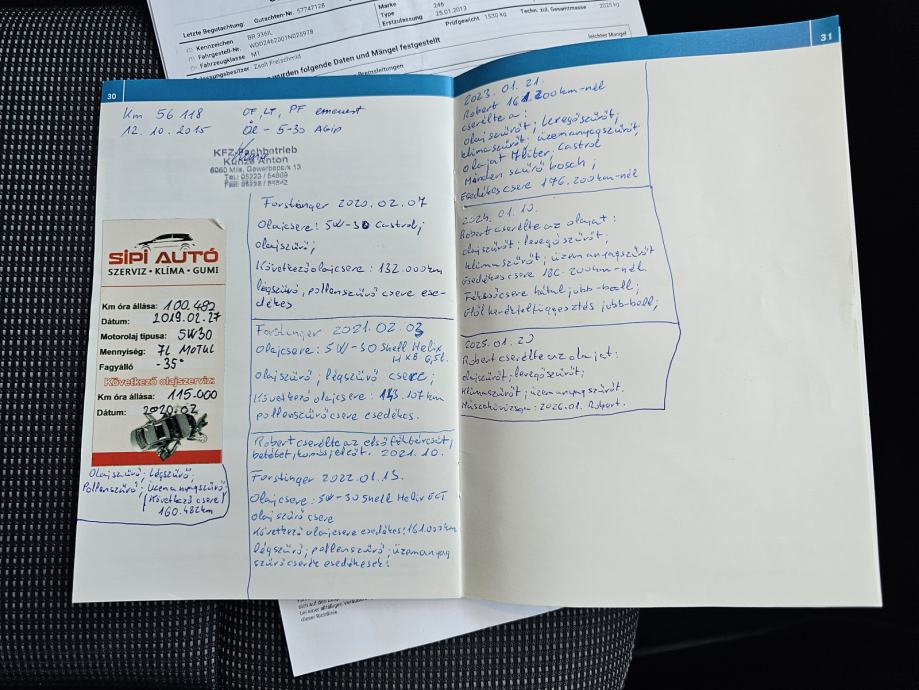 Letzte Begutachtung: Gutachten-Nr. 57747128
Kennzeichen BR 336IL
Fahrgestell-Nr. WDD2462001N025978
Fahrzeugklasse M1
Zulassungsbesitzer Zsolt Freischmid
wurden folgende Daten und Mängel festgestellt
Marke
Type 246
Erstzulassung 25.01.2013
Prüfgewicht 1530 kg
Techn. zul. Gesamtmasse 2025 kg
leichter Mangel
30
Km 56 118
12. 10. 2015
ÖF, LF, PF erneuert
Öl - 5-30 Agip
KFZ-Fachbetrieb
Kunze Anton
6060 Mils, Gewerbepark 13
Tel.: 05223 / 54869
SIPI AUTÓ
SZERVIZ • KLÍMA • GUMI
Km óra állása: 100.482
Dátum: 2019.02.27
Motorolaj típusa: 5W30
Mennyiség: 7L MOTUL
Fagyálló -35°
Következő olajszerviz:
Km óra állása: 115.000
Dátum: 2020.02
Olajszűrő; Légszűrő;
Pollenszűrő; üzemanyagszűrő
(Következő csere)
160.482km
Forstinger 2020.02.07
Olajcsere: 5W-30 Castrol;
olajszűrő;
Következő olajcsere: 132.000km
légszűrő, pollenszűrő csere ese-
dékes
Forstinger 2021.02.03
Olajcsere: 5W-30 Shell Helix
HX8 6,5l.
olajszűrő; légszűrő csere;
Következő olajcsere: 143.107km
pollenszűrő csere esedékes.
Robert cserélte az első féktárcsát,
betétet, kopásjelzőt. 2021.10.
Forstinger 2022.01.13.
Olajcsere: 5W-30 Shell Helix ECT
olajszűrő csere
következő olajcsere esedékes: 161.000km
légszűrő; pollenszűrő; üzemanyag
szűrő cserék esedékesek!
31
2023.01.21.
Robert 161.200km-nél
cserélte a:
olajszűrőt; levegőszűrőt;
klímaszűrőt; üzemanyagszűrőt,
olajat 7liter, Castrol
Minden szűrő bosch;
Esedékes csere 176.200km-nél
2024.01.10.
Robert cserélte az olajat:
olajszűrőt; levegőszűrőt;
klímaszűrőt; üzemanyagszűrőt
Esedékes csere 186.200km-nél.
Fékcső csere hátul jobb-ball;
Első kerékfelfüggesztés jobb-ball;
2025.01.20
Robert cserélte az olajat:
olajszűrőt; levegőszűrőt;
Klímaszűrőt; üzemanyagszűrőt.
Műszaki vizsga: 2026.01. Robert.
dieser Richtlinie.